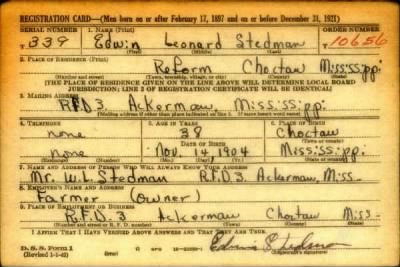 REGISTRATION CARD—(Men born on or after February 17, 1897 and on or before December 31, 1921)
SERIAL NUMBER 1. NAME (Print) ORDER NUMBER
T 339 Edwin Leonard Stedman 10656
(First) (Middle) (Last)
2. PLACE OF RESIDENCE (Print)
Reform Choctaw Mississippi
(Number and street) (Town, township, village, or city) (County) (State)
[THE PLACE OF RESIDENCE GIVEN ON THE LINE ABOVE WILL DETERMINE LOCAL BOARD
JURISDICTION; LINE 2 OF REGISTRATION CERTIFICATE WILL BE IDENTICAL]
3. MAILING ADDRESS
R.F.D.3 Ackerman, Mississippi
[Mailing address if other than place indicated on line 2. If same insert word same]
4. TELEPHONE 5. AGE IN YEARS 6. PLACE OF BIRTH
none 38 Choctaw
DATE OF BIRTH (Town or county)
none Nov. 14, 1904 Mississippi
(Mo.) (Day) (Yr.) (State or country)
7. NAME AND ADDRESS OF PERSON WHO WILL ALWAYS KNOW YOUR ADDRESS
Mr. W.L. Stedman R.F.D.3 Ackerman, Miss.
8. EMPLOYER'S NAME AND ADDRESS
Farmer (owner)
9. PLACE OF EMPLOYMENT OR BUSINESS
R.F.D. 3 Ackerman Choctaw Miss.
(Number and street or R. F. D. number) (Town) (County) (State)
I AFFIRM THAT I HAVE VERIFIED ABOVE ANSWERS AND THAT THEY ARE TRUE.
D. S. S. Form 1
(Revised 1-1-42) (over) Edwin L Stedman
(Registrant's signature)